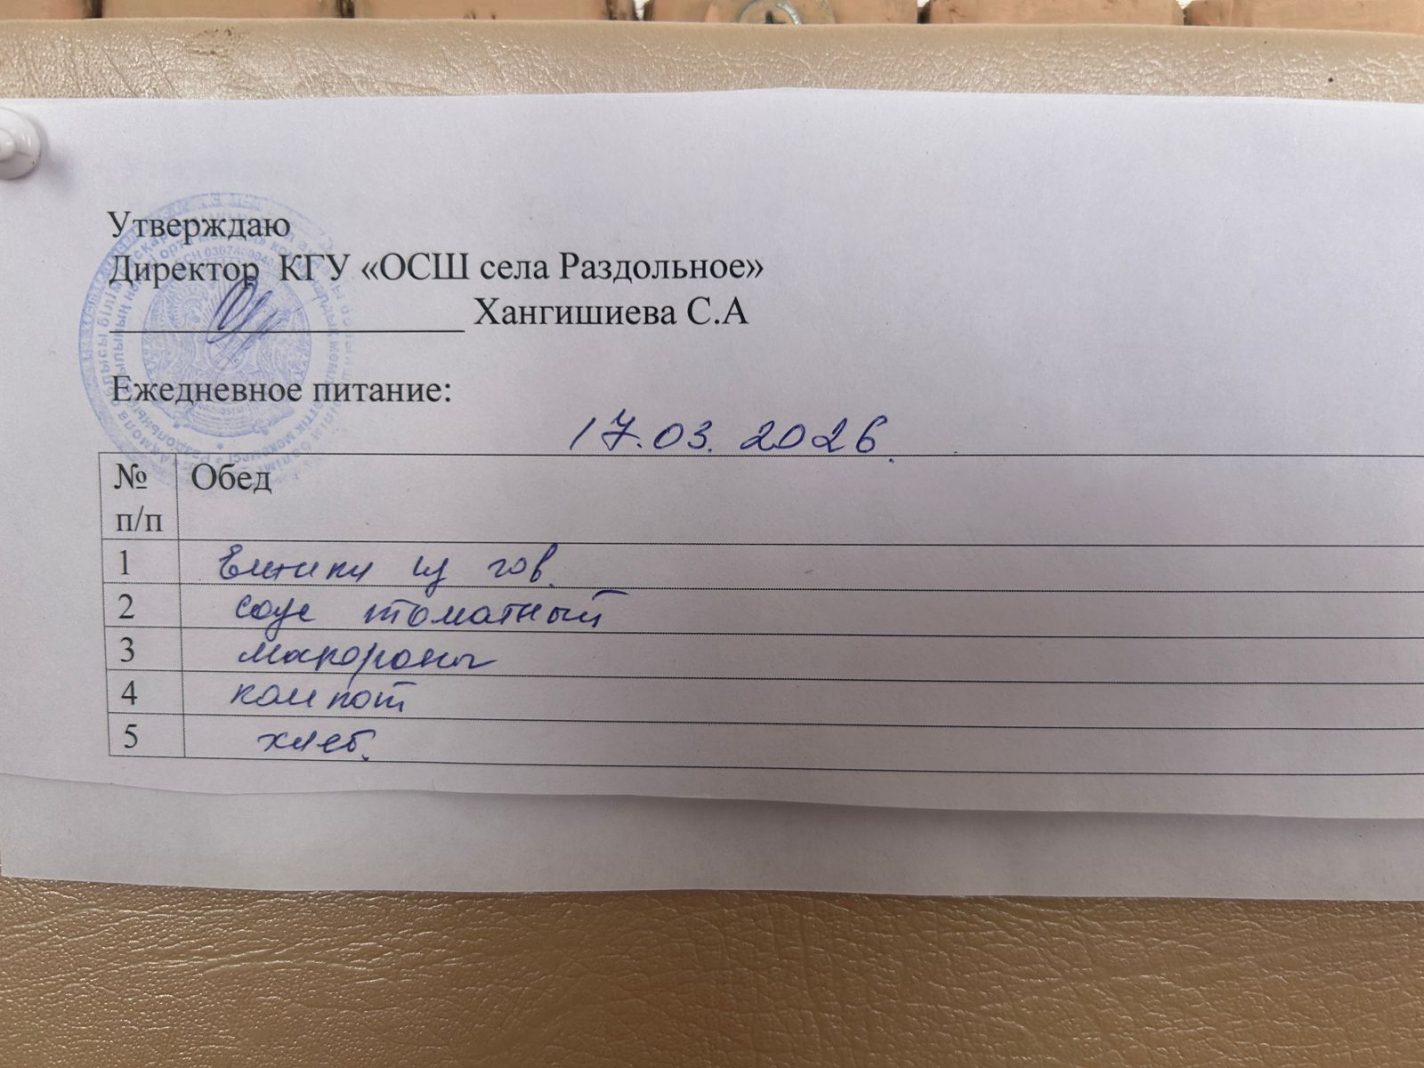 Утверждаю
Директор КГУ «ОСШ села Раздольное»
Хангишиева С.А
Ежедневное питание:
17.03.2026.
№ п/п Обед
1 из гов.
2 соус томатный
3 макароны
4 компот
5 хлеб.